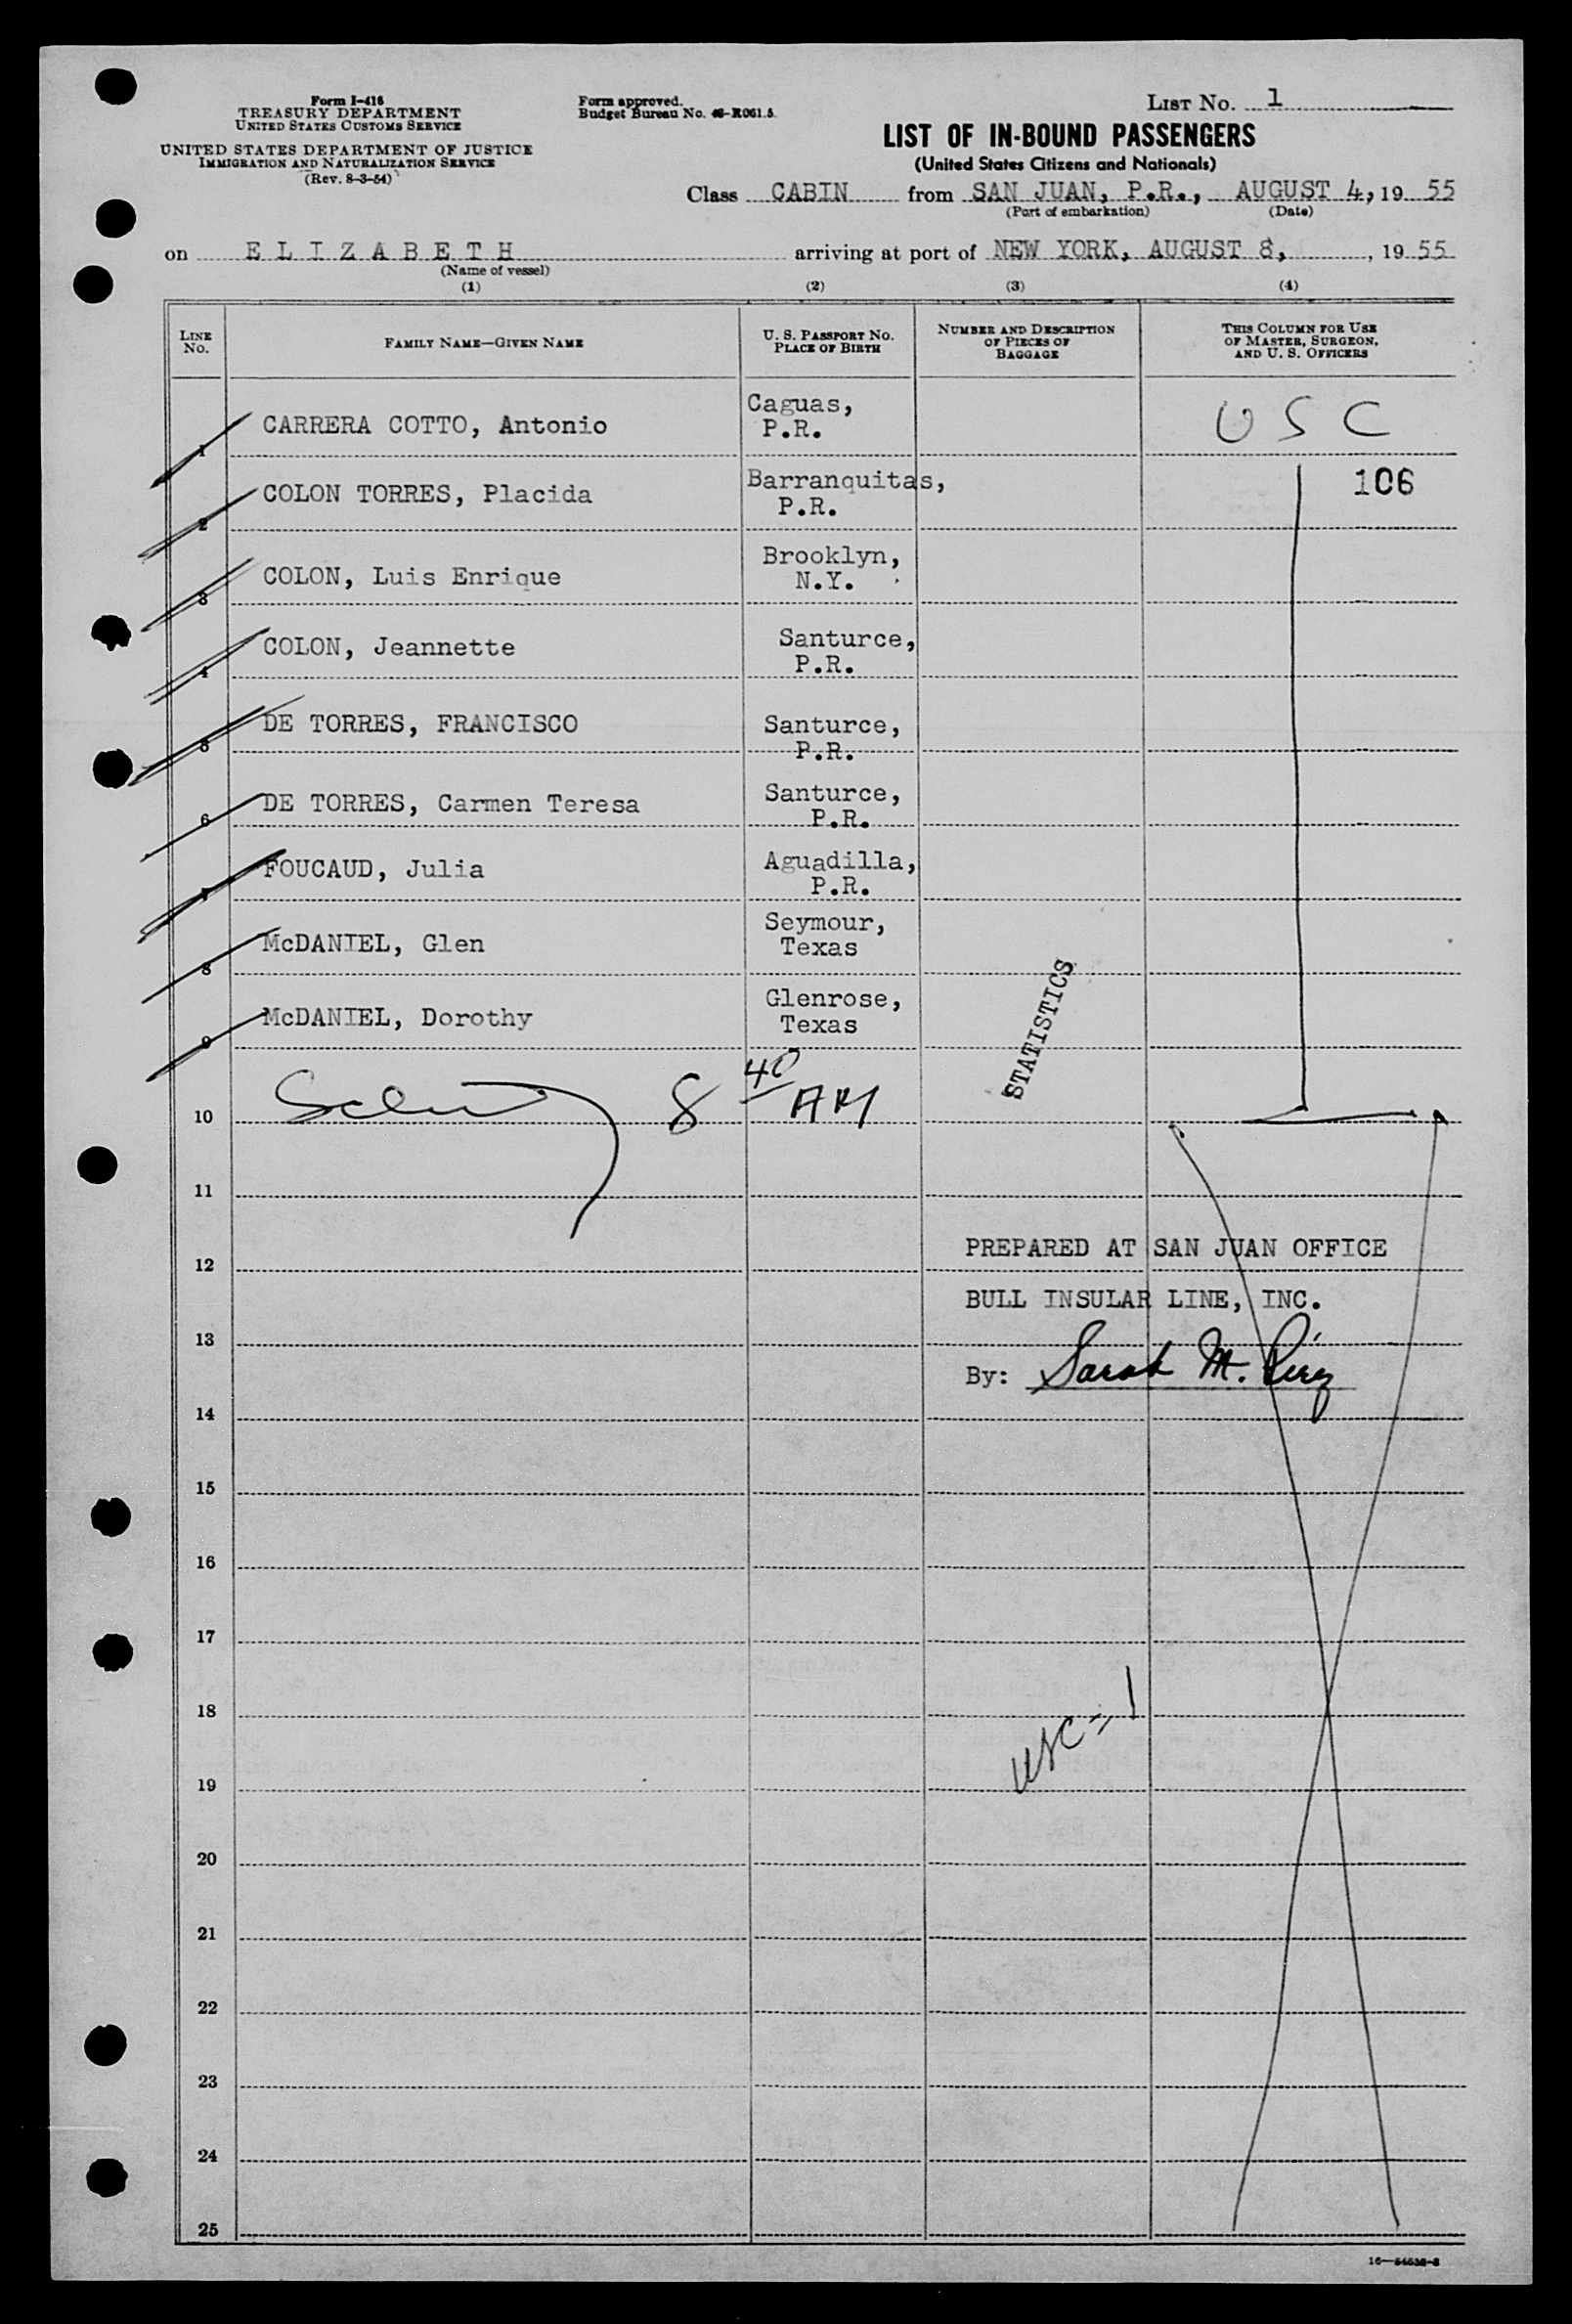 Form I-418
TREASURY DEPARTMENT
UNITED STATES CUSTOMS SERVICE
UNITED STATES DEPARTMENT OF JUSTICE
IMMIGRATION AND NATURALIZATION SERVICE
(Rev. 8-3-54)
Form approved.
Budget Bureau No. 43-R061.5.
LIST NO. 1
LIST OF IN-BOUND PASSENGERS
(United States Citizens and Nationals)
Class CABIN from SAN JUAN, P.R., AUGUST 4, 19 55
(Port of embarkation) (Date)
on E L I Z A B E T H arriving at port of NEW YORK, AUGUST 8, , 19 55
(Name of vessel)
(1) (2) (3) (4)
LINE NO.
FAMILY NAME—GIVEN NAME
U. S. PASSPORT NO.
PLACE OF BIRTH
NUMBER AND DESCRIPTION
OF PIECES OF
BAGGAGE
THIS COLUMN FOR USE
OF MASTER, SURGEON,
AND U. S. OFFICERS
1 CARRERA COTTO, Antonio Caguas, P.R. USC
2 COLON TORRES, Placida Barranquitas, P.R. 106
3 COLON, Luis Enrique Brooklyn, N.Y.
4 COLON, Jeannette Santurce, P.R.
5 DE TORRES, FRANCISCO Santurce, P.R.
6 DE TORRES, Carmen Teresa Santurce, P.R.
7 FOUCAUD, Julia Aguadilla, P.R.
8 McDANIEL, Glen Seymour, Texas
9 McDANIEL, Dorothy Glenrose, Texas
STATISTICS
10 8 40 AM
11
12 PREPARED AT SAN JUAN OFFICE
13 BULL INSULAR LINE, INC.
14 By: Sarah M.
15
16
17
18
usc = 1
19
20
21
22
23
24
25